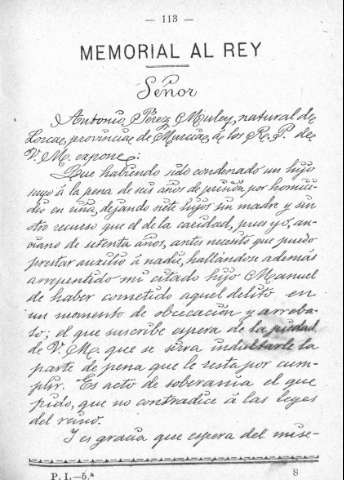 — 113 —
MEMORIAL AL REY
Señor
Antonio Pérez Muley, natural de
Lorca, provincia de Murcia, á los R. P. de
V. M. expone:
Que habiendo sido condenado un hijo
suyo á la pena de seis años de prisión, por homici-
dio en riña, dejando siete hijos sin madre y sin
otro recurso que el de la caridad, pues yo, an-
ciano de setenta años, antes necesito que puedo
prestar auxilio á nadie, hallándose además
arrepentido mi citado hijo Manuel
de haber cometido aquel delito en
un momento de obcecación y arreba-
to; el que suscribe espera de la piedad
de V. M. que se sirva indultarle la
parte de pena que le resta por cum-
plir. Es acto de soberanía el que
pido, que no contradice á las leyes
del reino.
Y es gracia que espera del mise-
P. I.—5.ª 8